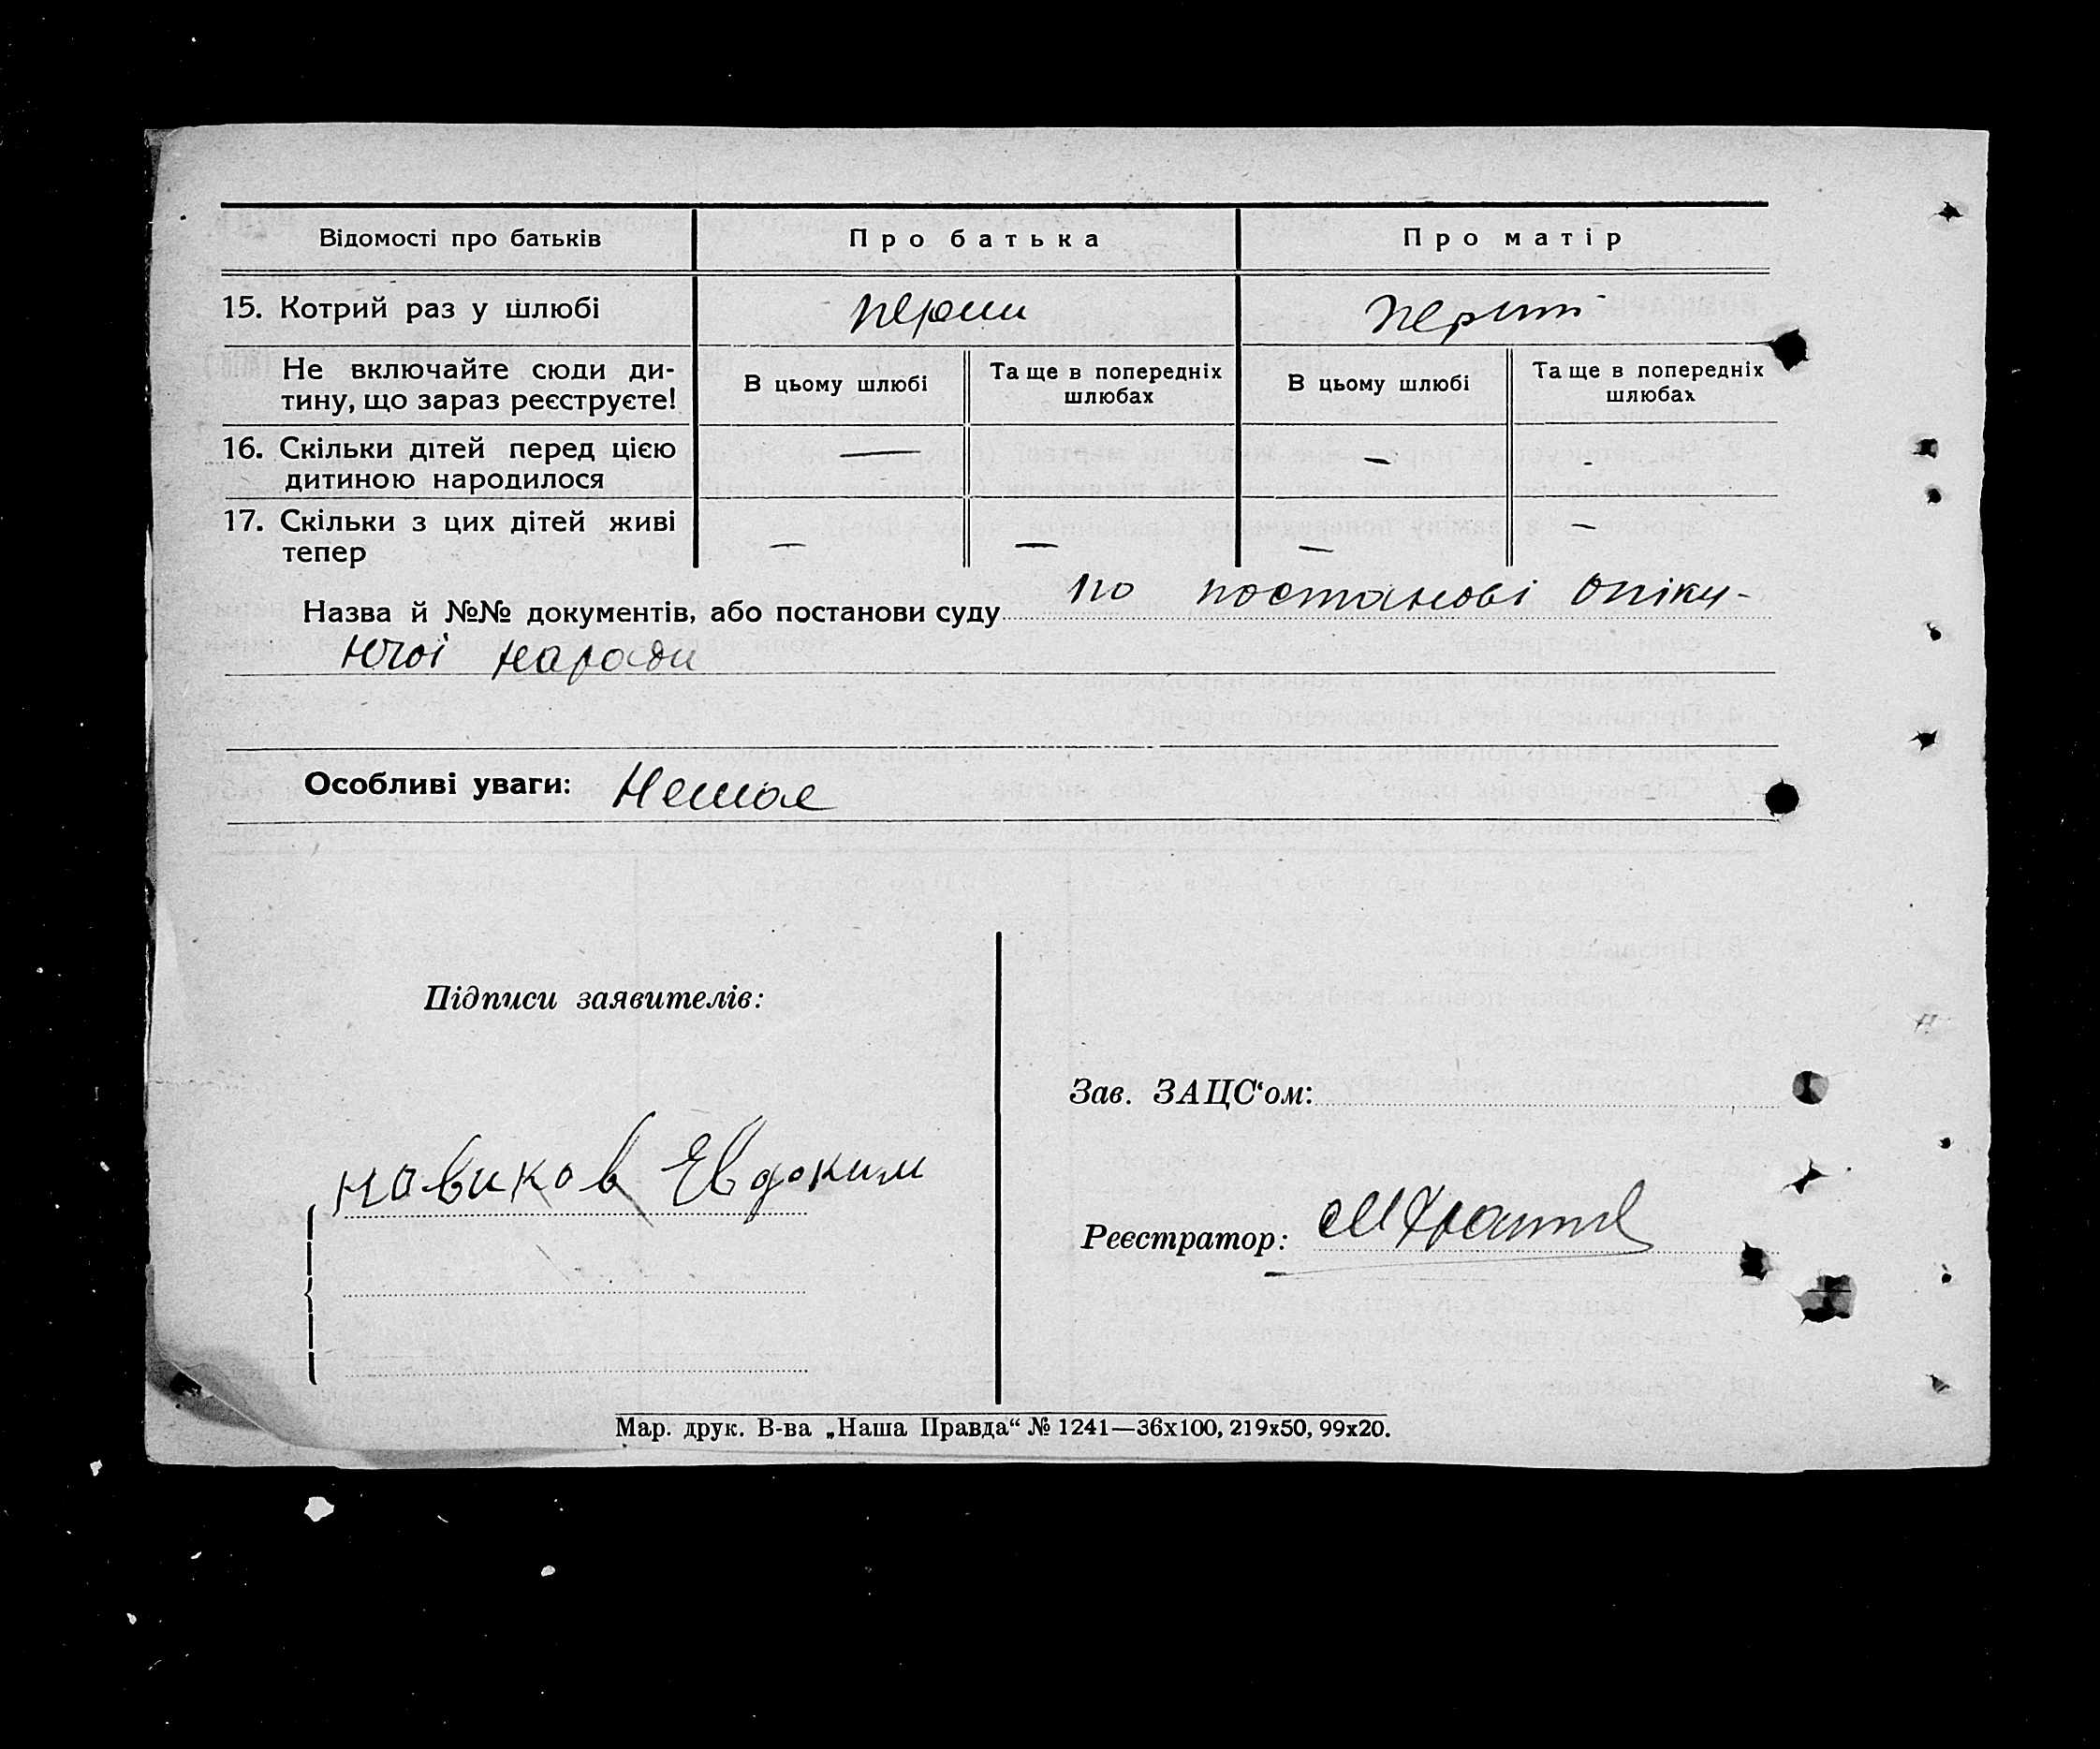 Відомості про батьків Про батька Про матір
15. Котрий раз у шлюбі перший перший
Не включайте сюди ди-
тину, що зараз реєструєте!
В цьому шлюбі Та ще в попередніх шлюбах В цьому шлюбі Та ще в попередніх шлюбах
16. Скільки дітей перед цією — — -
дитиною народилося
17. Скільки з цих дітей живі — — — —
тепер
Назва й №№ документів, або постанови суду по постанові опіку-
нчої наради
Особливі уваги: Немає
Підписи заявителів:
Зав. ЗАЦС'ом:
новиков Евдоким
Реєстратор:
Мар. друк. В-ва „Наша Правда“ № 1241—36х100, 219х50, 99х20.